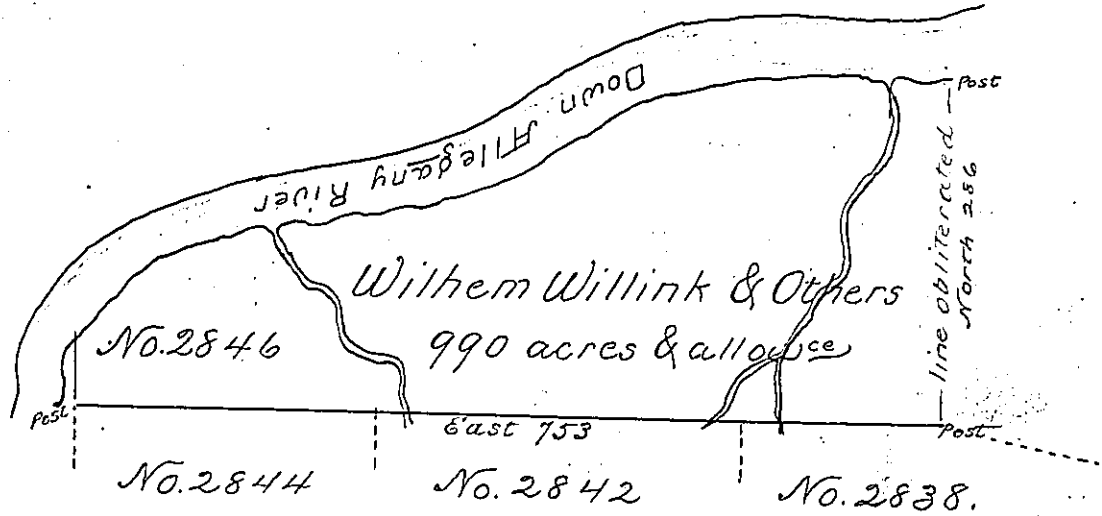 Down Allegany River
Post
line obliterated
North 286
Wilhem Willink & Others
No. 2846
990 acres & allowce
Post
East 753
Post
No. 2844
No. 2842
No. 2838.